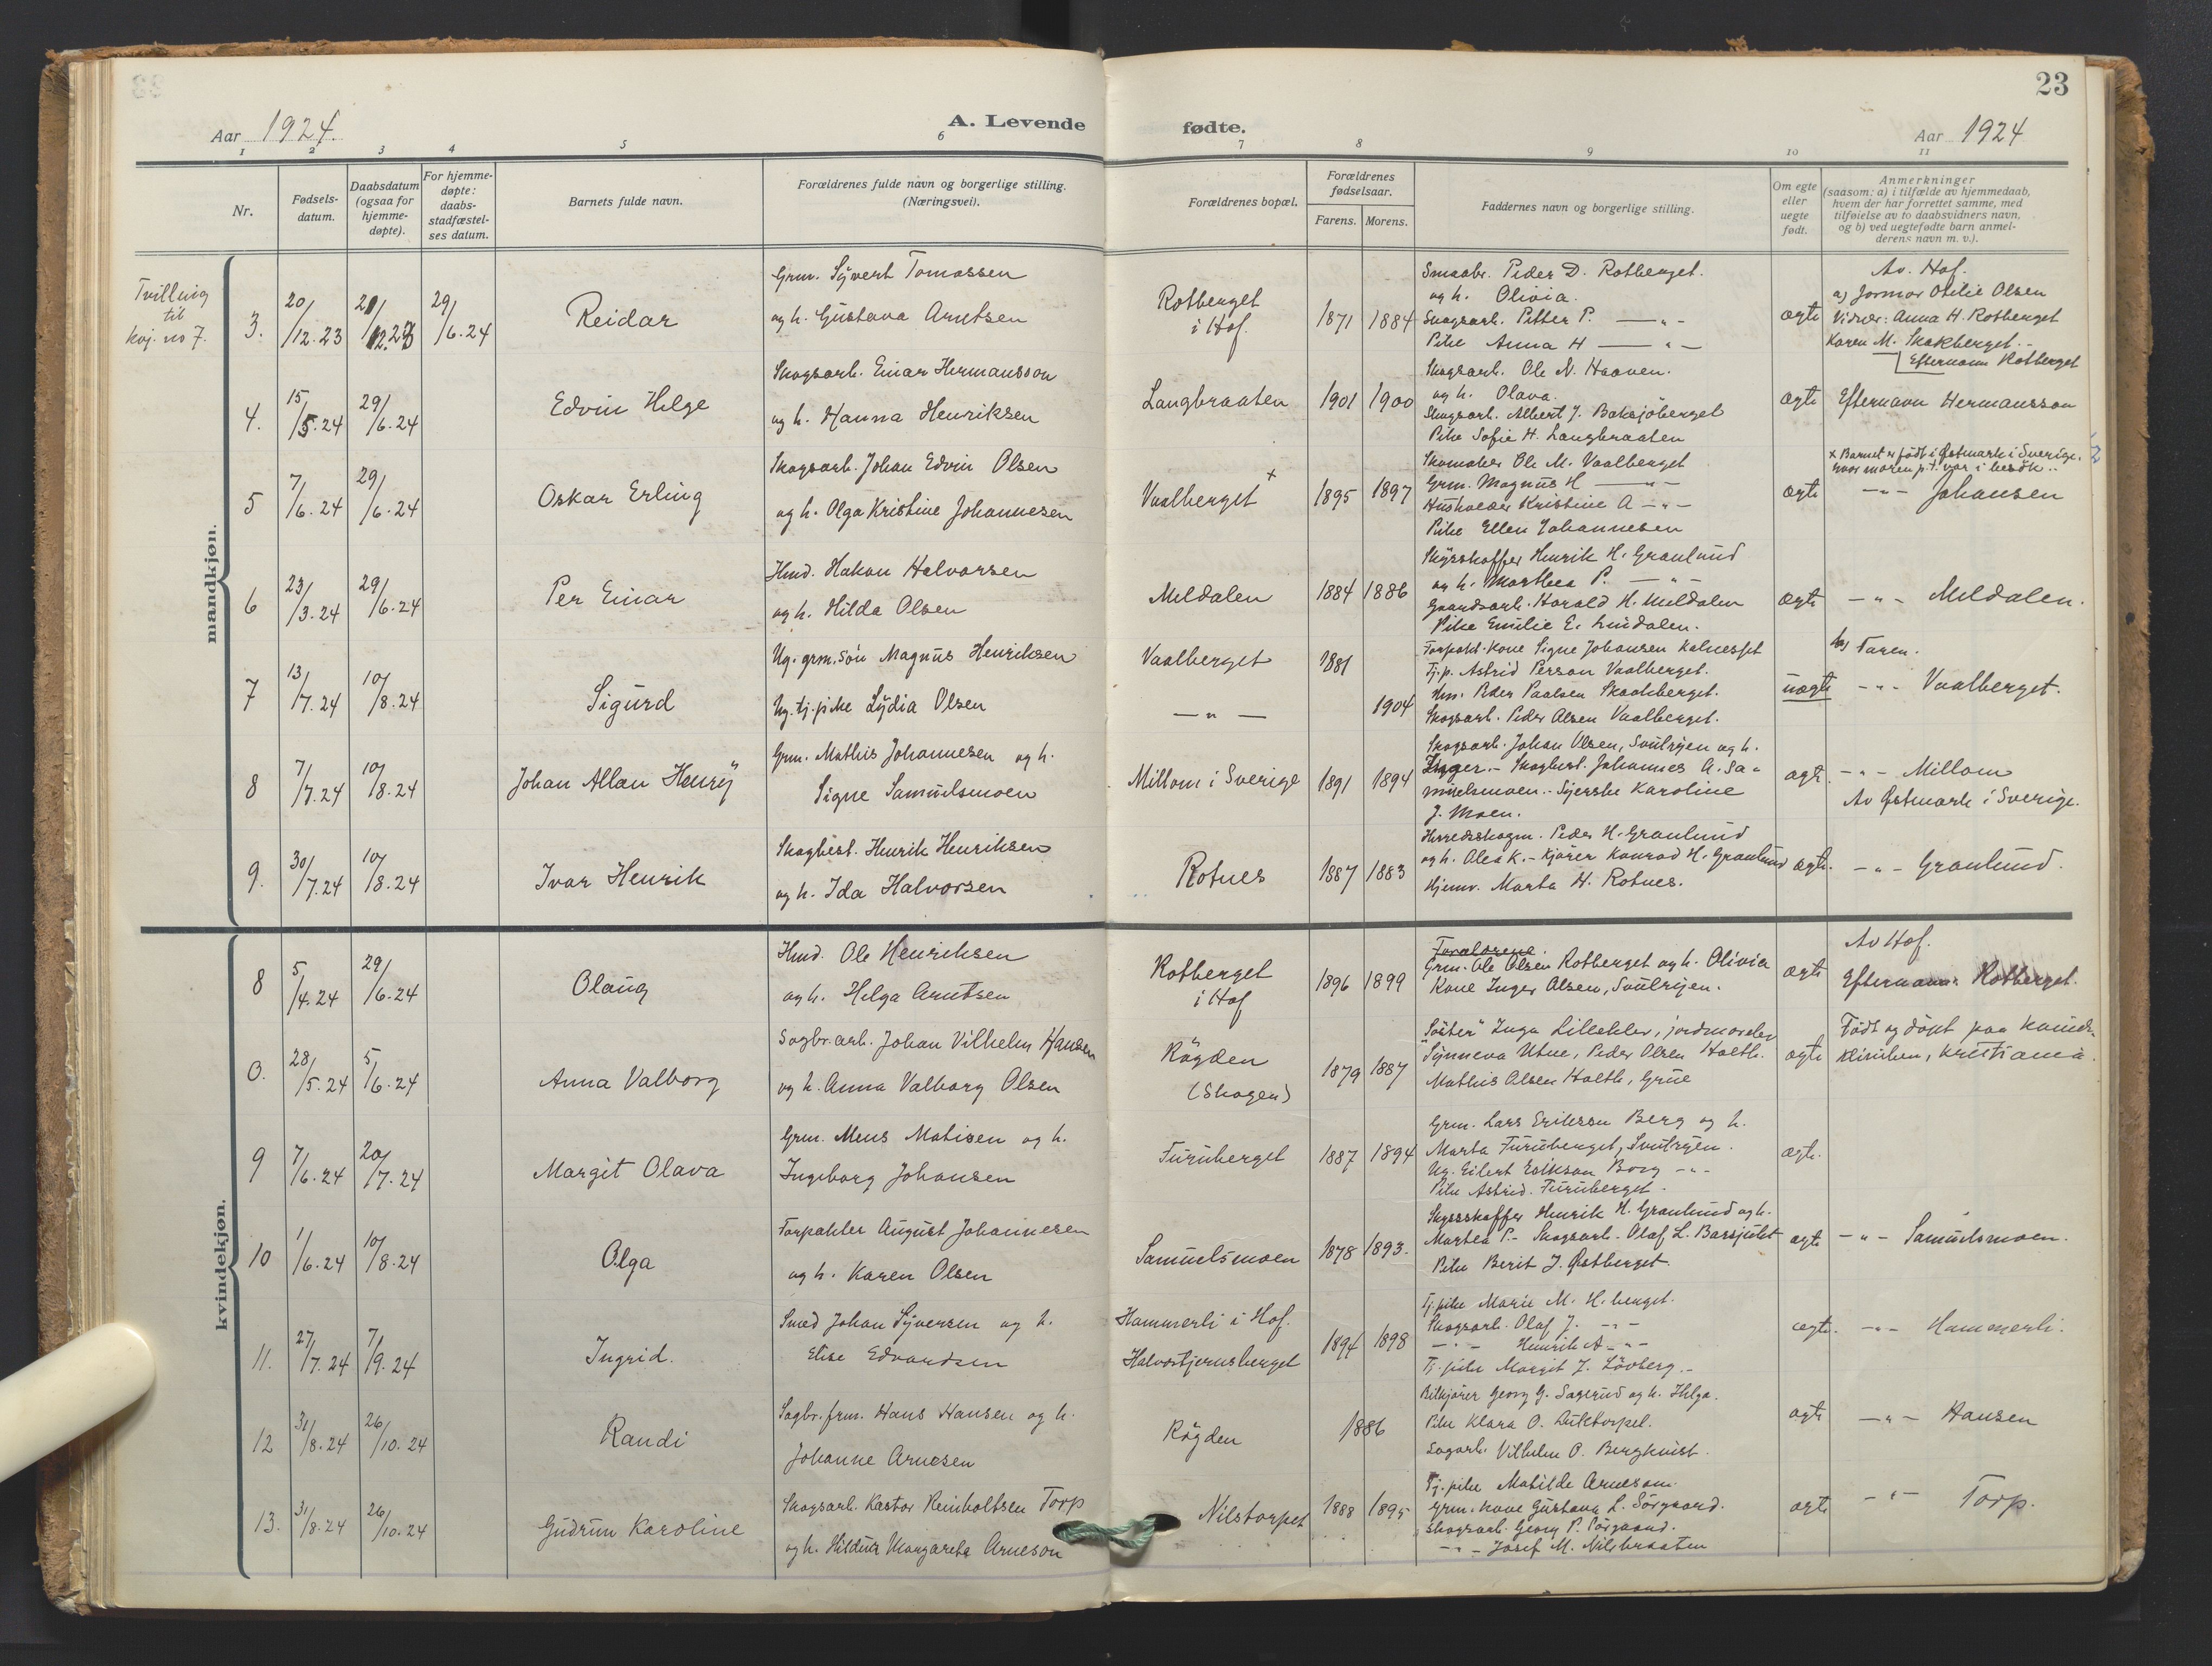 23
Aar 1924.
A. Levende fødte.
Aar 1924
1 2 3 4 5 6 7 8 9 10 11
Nr.
Fødsels-
datum.
Daabsdatum
(ogsaa for
hjemme-
døpte).
For hjemme-
døpte:
daabs-
stadfæstel-
ses datum.
Barnets fulde navn.
Forældrenes fulde navn og borgerlige stilling.
(Næringsvei).
Forældrenes bopæl.
Forældrenes
fødselsaar.
Farens. Morens.
Faddernes navn og borgerlige stilling.
Om egte
eller
uegte
født.
Anmerkninger
(saasom: a) i tilfælde av hjemmedaab,
hvem der har forrettet samme, med
tilføielse av to daabsvidners navn,
og b) ved uegtefødte barn anmel-
derens navn m. v.).
mandkjøn.
Tvilling
til
kvj. no 7.
3. 20/12.23 29/6.24
Reidar
Grm. Syvert Tomassen
og h. Gustava Arntsen
Rotberget
i Hof.
1871 1884
Smaabr. Peder D. Rotberget.
og h. Olivia.
Skogsarb. Petter P. — " —
Pike Anna H — " —
ægte
Av. Hof.
a) Jormor Otilie Olsen
Vidner: Anna H. Rotberget
Karen M. Skakberget. -
Efternavn Rotberget
4. 15/5.24 29/6.24
Edvin Helge
Skogsarb. Einar Hermansson
og h. Hanna Henriksen
Langbraaten
1901 1900
Skogsarb. Ole N. Haaven.
og h. Olava.
Skogsarb. Albert J. Baksjöberget
Pike Sofie H. Langbraaten
ægte
Efternavn Hermansson
5 7/6.24 29/6.24
Oskar Erling
Skogsarb. Johan Edvin Olsen
og h. Olga Kristine Johannesen
Vaalberget x
1895 1897
Skomaker Ole M. Vaalberget
Grm. Magnus H — " —
Husholder Kristine A — " —
Pike Ellen Johannesen
ægte
x Barnet er født i Østmark i Sverige,
hvor moren p.t. var i besök..
— " — Johansen
6 23/3.24 29/6.24
Per Einar
Hmd. Hakon Halvorsen
og h. Hilda Olsen
Meldalen
1884 1886
Skysskaffer Henrik H. Granlund
og h. Marthea P. — " —
Gaardsarb. Harald H. Meldalen
Pike Emilie E. Lindalen.
ægte
— " — Meldalen.
7 13/7.24 10/8.24
Sigurd
Ug. grm. sön Magnus Henriksen
Ug. tj. pike Lydia Olsen
Vaalberget
— " —
1881
1904
Forpakt. Kone Signe Johansen Kalneset
Tj. p. Astrid Person Vaalberget.
Hm. Peder Paalsen Skakberget.
Skogsarb. Peder Olsen Vaalberget.
uægte
b) Faren.
— " — Vaalberget.
8 7/7.24 10/8.24
Johan Allan Henry
Grm. Mathis Johannesen og h.
Signe Samuelsmoen
Millom i Sverige
1891 1894
Skogsarb. Johan Olsen, Svulryen og h.
Inger. - Skogbest. Johannes A. Sa-
muelsmoen. - Syerske Karoline
J. Moen.
ægte.
— " — Millom
Av Østmark i Sverige.
9. 30/7.24 10/8.24
Ivar Henrik
Skogbest. Henrik Henriksen
og h. Ida Halvorsen
Rotnes
1887 1883
Herredsskogm. Peder H. Granlund
og h. Olea K. - Kjører Konrad H. Granlund
Hjemv. Marta H. Rotnes.
ægte.
— " — Granlund.
kvindekjøn.
8 5/4.24 29/6.24
Olaug
Hmd. Ole Henriksen
og h. Helga Arntsen
Rotberget
i Hof
1896 1899
Forældrene.
Grm. Ole Olsen Rotberget og h. Olivia
Kone Inger Olsen, Svulryen.
ægte
Av Hof.
Efternavn Rotberget.
0. 28/5.24 5/6.24
Anna Valborg
Sagbr. arb. Johan Vilhelm Hansen
og h. Anna Valborg Olsen
Røgden
(Skogen)
1879 1887
"Söster" Inga Lilleeklev, jordmorelev
"Synneva Utne, Peder Olsen Holth.
Mathis Olsen Holth, Grue
ægte
Født og døpt paa Kvinde-
kliniken, Kristiania.
9 7/6.24 20/7.24
Margit Olava
Grm. Mens Matisen og h.
Ingeborg Johansen
Furuberget
1887 1894
Grm. Lars Eriksson Berg og h.
Marta Furuberget, Svulryen.
Ug. Eilert Eriksson Berg — " —
Pike Astrid. Furuberget.
ægte.
10 1/6.24 10/8.24
Olga
Forpakter August Johannesen
og h. Karen Olsen
Samuelsmoen
1878 1893.
Skysskaffer Henrik H. Granlund og h.
Martea P. - Skogsarb. Olaf L. Baksjölet
Pike Berit J. Østberget.
ægte
— " — Samuelsmoen.
11. 27/7.24 7/9.24
Ingrid.
Smed Johan Syversen og h.
Elise Edvardsen
Hammerli i Hof.
Halvortjernsberget
1894 1898
Tj. pike Marie M. H. berget.
Skogsarb. Olaf J. — " —
— " — Henrik A — " —
Tj. pike Margit J. Lövberg. -
ægte.
— " — Hammerli.
12 31/8.24 26/10.24
Randi
Sagbr. frm. Hans Hansen og h.
Johanne Arnesen
Røgden
1886
Bilkjører Georg G. Sagerud og h. Helga.
Pike Klara O. Luktorpet.
Sagarb. Vilhelm O. Bergkvist.
ægte
— " — Hansen
13. 31/8.24 26/10.24
Gudrun Karoline
Skogsarb. Kastor Reinholtsen Torp
og h. Hildur Margareta Arneson
Nilstorpet
1888 1895
Tj. pike Matilde Arnesson.
Grm. kone Gustava L. Sörgaard.
Skogsarb. Georg P. Sörgaard.
— " — Josef M. Nilsbraaten
ægte
— " — Torp.